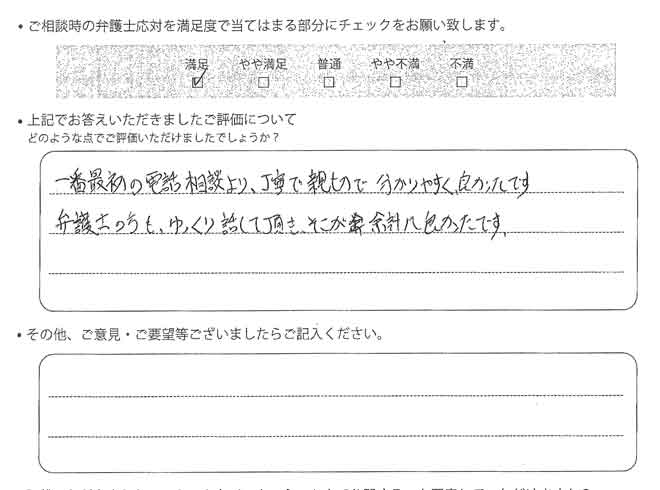 ・ご相談時の弁護士応対を満足度で当てはまる部分にチェックをお願い致します。
満足 やや満足 普通 やや不満 不満
・上記でお答えいただきましたご評価について
どのような点でご評価いただけましたでしょうか？
一番最初の電話相談より、丁寧で親切で 分かりやすく、良かったです
弁護士のうも、ゆっくり話して頂き、そこが 余計に良かったです。
・その他、ご意見・ご要望等ございましたらご記入ください。